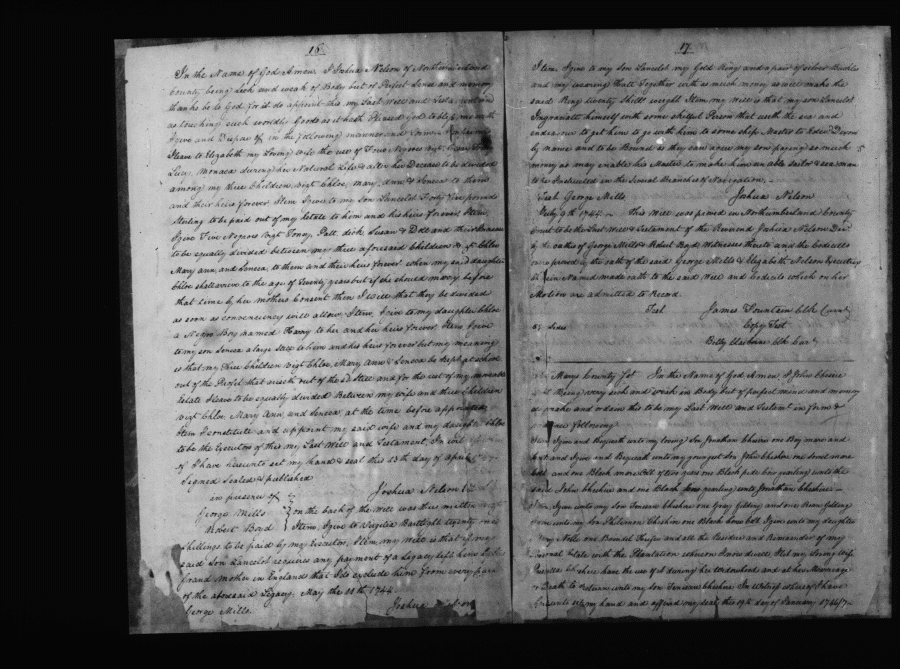 16
In the Name of God Amen I Joshua Nelson of Northumberland
County being sick and weak of Body but of Perfect Sense and memory
thanks be to God for it do appoint this my Last Will and Testament
as touching such worldly Goods as it hath Pleased God to bless me with
I give and Dispose of in the following manner and
I leave to Elizabeth my Loving wife the use of Negroes Vizt
Lucy, Monaca during her Natural Life & after her Decease to be divided
among my three Children Vizt Chloe, Mary Ann & Seneca to them
and their heirs forever Item I give to my Son Lancelot Forty five pounds
Sterling to be paid out of my Estate to him and his heirs forever Item
I give Five Negroes Vizt Toney, Patt, dick Susan & Doll and their Increase
to be equally divided between my three aforesaid Children Vizt Chloe
Mary ann and Seneca, to them and their heirs forever when my said Daughter
Chloe shall arrive to the age of Twenty years but if she should marry before
that time by her mothers Consent then I will that they be divided
as soon as conveniency will allow, Item, I give to my daughter Chloe
a Negro Boy named Harry to her and her heirs forever Item I give
to my son Seneca a large Still to him and his heirs forever but my meaning
is that my three Children Vizt Chloe, Mary Ann & Seneca be kept at school
out of the Profit that ariseth out of the sd Still and for the rest of my moveable
Estate I leave to be equally divided Between my wife and three Children
Vizt Chloe Mary Ann and Seneca, at the time before appointed
Item I constitute and appoint my said wife and my daughter Chloe
to be the Executors of this my Last Will and Testament, In
of I have hereunto set my hand & seal this 23th day of April
Signed sealed & published
in presence of Joshua Nelson
George Mills on the back of the will was thus written
Robert Boyd Item, I give to twenty one
shillings to be paid by my Executor, Item, my Will is that if my
said Son Lancelot requires any payment of a Legacy left him by his
Grand Mother in England that I do exclude him from every part
of the aforesaid Legacy. May the 11th 1744
George Mills. Joshua Nelson
17
Item I give to my Son Lancelot my Gold Ring and a pair of silver Buckles
and my wearing Together with as much money as will make the
said Ring twenty Shills weight Item my Will is that my son Lancelot
Ingratiate himself with some skilful Person that useth the sea and
endeavour to get him to go with him to some Ship Master to
by name and to be Bound as they can agree my son paying as much
money as may enable his Master to make him an able sailor & seaman
to be Instructed in the Several Branches of Navigation
Test George Mills Joshua Nelson
July 9th 1744. This Will was proved in Northumberland County
Court to be the Last Will & Testament of the Reverend Joshua Nelson
by the oaths of George Mills & Robert Boyd Witnesses thereto and the Codicil
proved by the oath of the said George Mills & Elizabeth Nelson Executrix
therein Named made oath to the said Will and Codicile which on her
Motion are admitted to Record.
Test James Fountain Clk Curt
Copy Test
Billy Claiborne Clk Curt
County Sct In the Name of God Amen I John
Being very sick and weak in Body but of perfect mind and memory
make and ordain this to be my Last Will and Testament in form &
following
I give and Bequeath unto my loving Son Jonathan one Bay mare and
and I give and Bequeath unto my youngest Son John one sorrel mare
and one Black mare Colt of two years one Black gealing unto the
said John and one Black gealing unto Jonathan
I give unto my Son one Gray Gelding and one Roan gelding
unto my Son one Black horse Colt I give unto my daughter
one Brandled Heifer and all the Residue and Remainder of my
Personal Estate with the Plantation whereon I now dwell I let my loving Wife
have the use of it during her widowhood and at her Marriage
or Death to return unto my son In Witness whereof I have
hereunto set my hand and affixed my seal this 19th day of January 1746/7